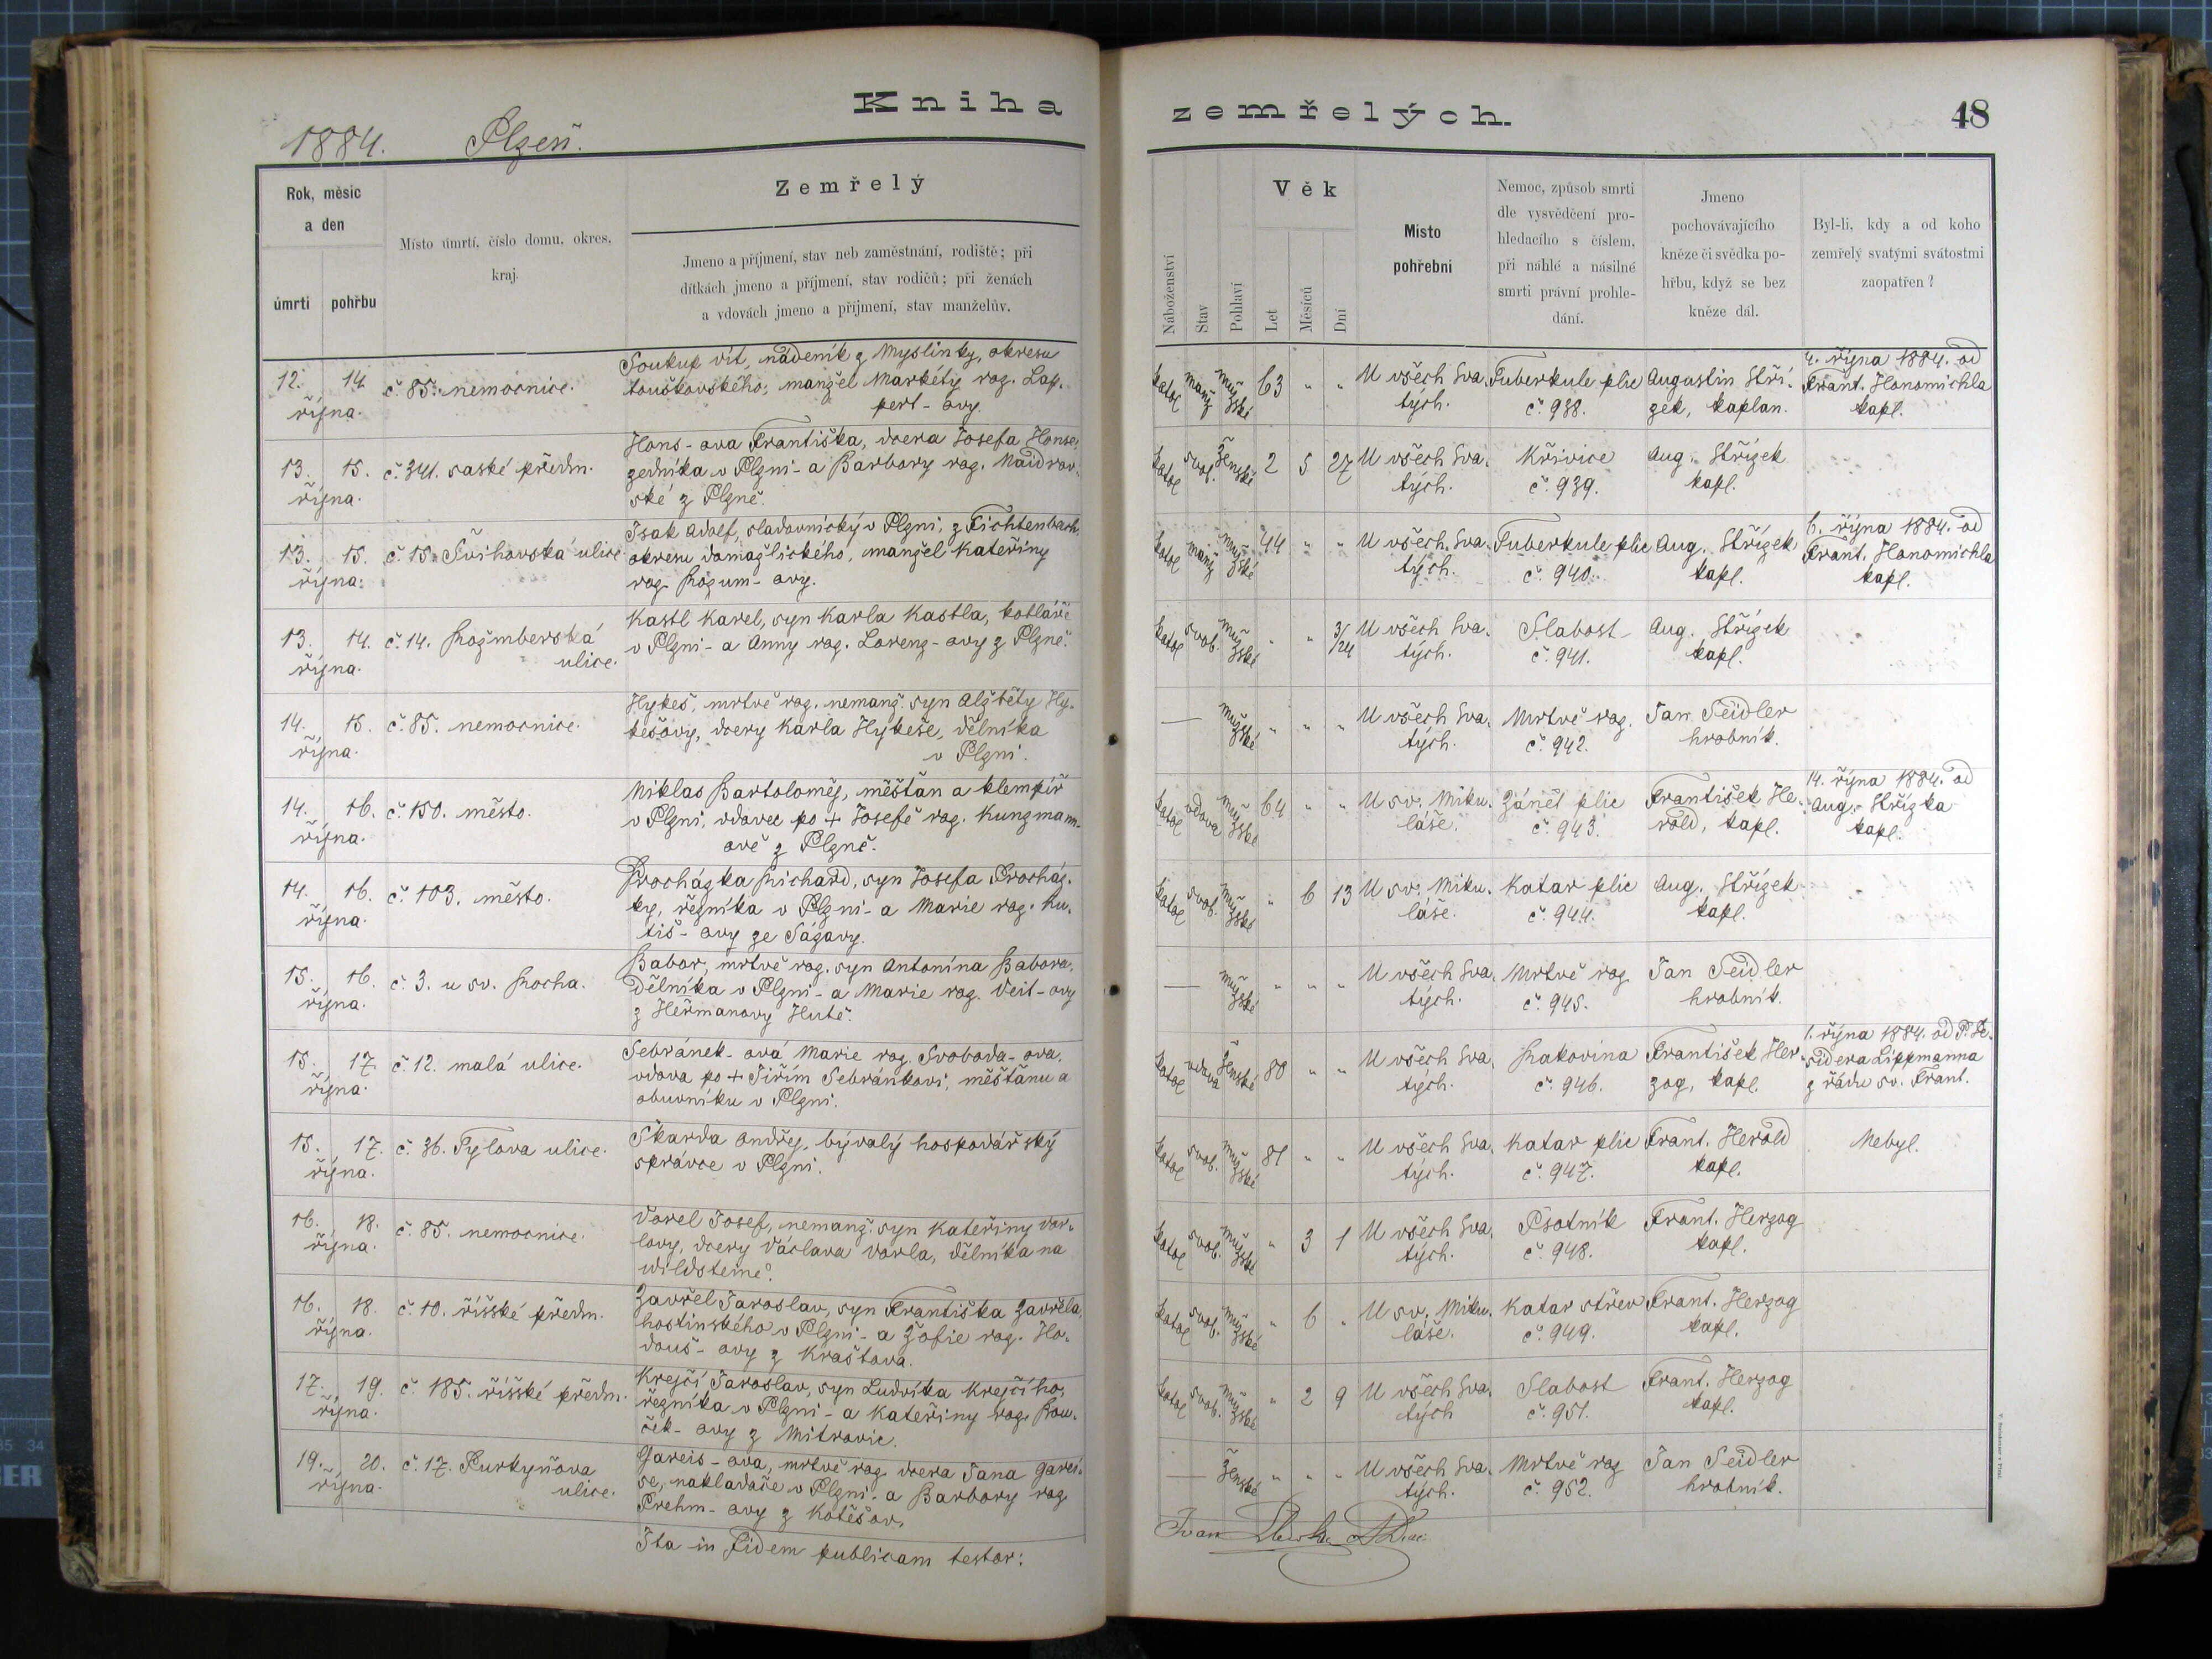 Kniha
1884. Plzeň.
Rok, měsíc
a den
úmrtí
pohřbu
Místo úmrtí, číslo domu, okres,
kraj.
Zemřelý
Jmeno a příjmení, stav neb zaměstnání, rodiště; při
dítkách jmeno a příjmení, stav rodičů; při ženách
a vdovách jmeno a příjmení, stav manželův.
12. 14.
října.
č. 85. nemocnice.
Soukup Vít, nádeník z Myslinky, okresu
touškovského, manžel Markéty roz. Lap-
pert-ovy.
13. 15.
října.
č. 341. saské předm.
Hons-ova Františka, dcera Josefa Honse,
zedníka v Plzni-a Barbory roz. Naidrov-
ské z Plzně.
13. 15.
října.
č. 15. Švihovská ulice.
Isak Adolf, sladovnický v Plzni, z Fichtenbach,
okresu domažlického, manžel Kateřiny
roz. Rozum-ovy.
13. 14.
října.
č. 14. Rožmberská
ulice.
Kastl Karel, syn Karla Kastla, kotláře
v Plzni-a Anny roz. Lorenz-ovy z Plzně.
14. 15.
října.
č. 85. nemocnice.
Hykeš, mrtvě roz. nemanž. syn Alžběty Hy-
kešovy, dcery Karla Hykeše, dělníka
v Plzni.
14. 16.
října.
č. 150. město.
Niklas Bartoloměj, měštan a klempíř
v Plzni, vdovec po + Josefě roz. Kunzmann-
ově z Plzně.
14. 16.
října.
č. 103. město.
Procházka Richard, syn Josefa Procház-
ky, řezníka v Plzni-a Marie roz. Ku-
tiš-ovy ze Sázavy.
15. 16.
října.
č. 3. u sv. Rocha.
Babor, mrtvě roz. syn Antonína Babora,
dělníka v Plzni-a Marie roz. Veit-ovy
z Heřmanovy Hutě.
15. 17.
října.
č. 12. malá ulice.
Sebránek-ová Marie roz. Svoboda-ova,
vdova po + Jiřím Sebránkovi, měšťanu a
obuvníku v Plzni.
15. 17.
října.
č. 36. Tylova ulice.
Škarda Ondřej, bývalý hospodářský
správce v Plzni.
16. 18.
října.
č. 85. nemocnice.
Vorel Josef, nemanž. syn Kateřiny Vor-
lovy, dcery Václava Vorla, dělníka na
Wildsteině.
16. 18.
října.
č. 10. říšské předm.
Zavřel Jaroslav, syn Františka Zavřela,
hostinského v Plzni-a Žofie roz. Ho-
douš-ovy z Kraštova.
17. 19.
října.
č. 185. říšské předm.
Krejčí Jaroslav, syn Ludvíka Krejčího,
řezníka v Plzni-a Kateřiny roz. Rou-
ček-ovy z Mitrovic.
19. 20.
října.
č. 17. Purkyňova
ulice.
Gareis-ova, mrtvě roz. dcera Jana Garei-
se, nakladače v Plzni-a Barbory roz.
Prehm-ovy z Kotěšov.
Ita in fidem publicam testor:
zemřelých.
48
Náboženství
Stav
Pohlaví
Věk
Let
Měsíců
Dní
Místo
pohřební
Nemoc, způsob smrti
dle vysvědčení pro-
hledacího s číslem,
při náhlé a násilné
smrti právní prohle-
dání.
Jmeno
pochovávajícího
kněze či svědka po-
hřbu, když se bez
kněze dál.
Byl-li, kdy a od koho
zemřelý svatými svátostmi
zaopatřen?
katol manž mužské 63 " "
U všech Sva-
tých.
Tuberkule plic
č. 938.
Augustin Stří-
zek, kaplan.
4. října 1884. od
Frant. Honomichla
kapl.
katol svob. Ženské 2 5 27
U všech Sva-
tých.
Křivice
č. 939.
Aug. Střízek
kapl.
katol manž mužské 44 " "
U všech Sva-
tých.
Tuberkule plic
č. 940.
Aug. Střízek
kapl.
6. října 1884. od
Frant. Honomichla
kapl.
katol svob. mužské " " 3/24
U všech Sva-
tých.
Slabost
č. 941.
Aug. Střízek
kapl.
— mužské " " "
U všech Sva-
tých.
Mrtvě roz.
č. 942.
Jan Seidler
hrobník.
katol vdova mužské 64 " "
U sv. Miku-
láše.
Zánět plic
č. 943.
František He-
rold, kapl.
14. října 1884. od
Aug. Střízka
kapl.
katol svob. mužské " 6 13
U sv. Miku-
láše.
Katar plic
č. 944.
Aug. Střízek
kapl.
— mužské " " "
U všech Sva-
tých.
Mrtvě roz
č. 945.
Jan Seidler
hrobník.
katol vdova Ženské 80 " "
U všech Sva-
tých.
Rakovina
č. 946.
František Her-
zog, kapl.
1. října 1884. od P. De-
sidera Lippmanna
z řádu sv. Frant.
katol svob. mužské 81 " "
U všech Sva-
tých.
Katar plic
č. 947.
Frant. Herold
kapl.
Nebyl.
katol svob. mužské " 3 1
U všech Sva-
tých.
Psotník
č. 948.
Frant. Herzog
kapl.
katol svob. mužské " 6 "
U sv. Miku-
láše.
Katar střev
č. 949.
Frant. Herzog
kapl.
katol svob. mužské " 2 9
U všech Sva-
tých
Slabost
č. 951.
Frant. Herzog
kapl.
— Ženské " " "
U všech Sva-
tých.
Mrtvě roz
č. 952.
Jan Seidler
hrobník.